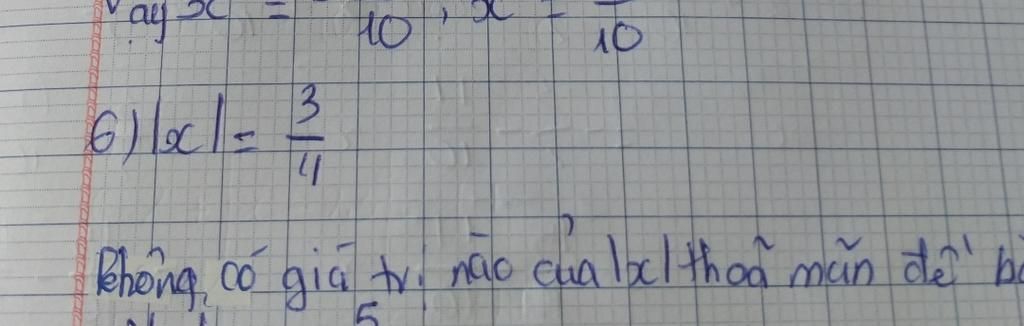 Vậy x = 10 , x = 10
6) |x| = 3/4
Không có giá trị nào của |x| thoả mãn đề
5